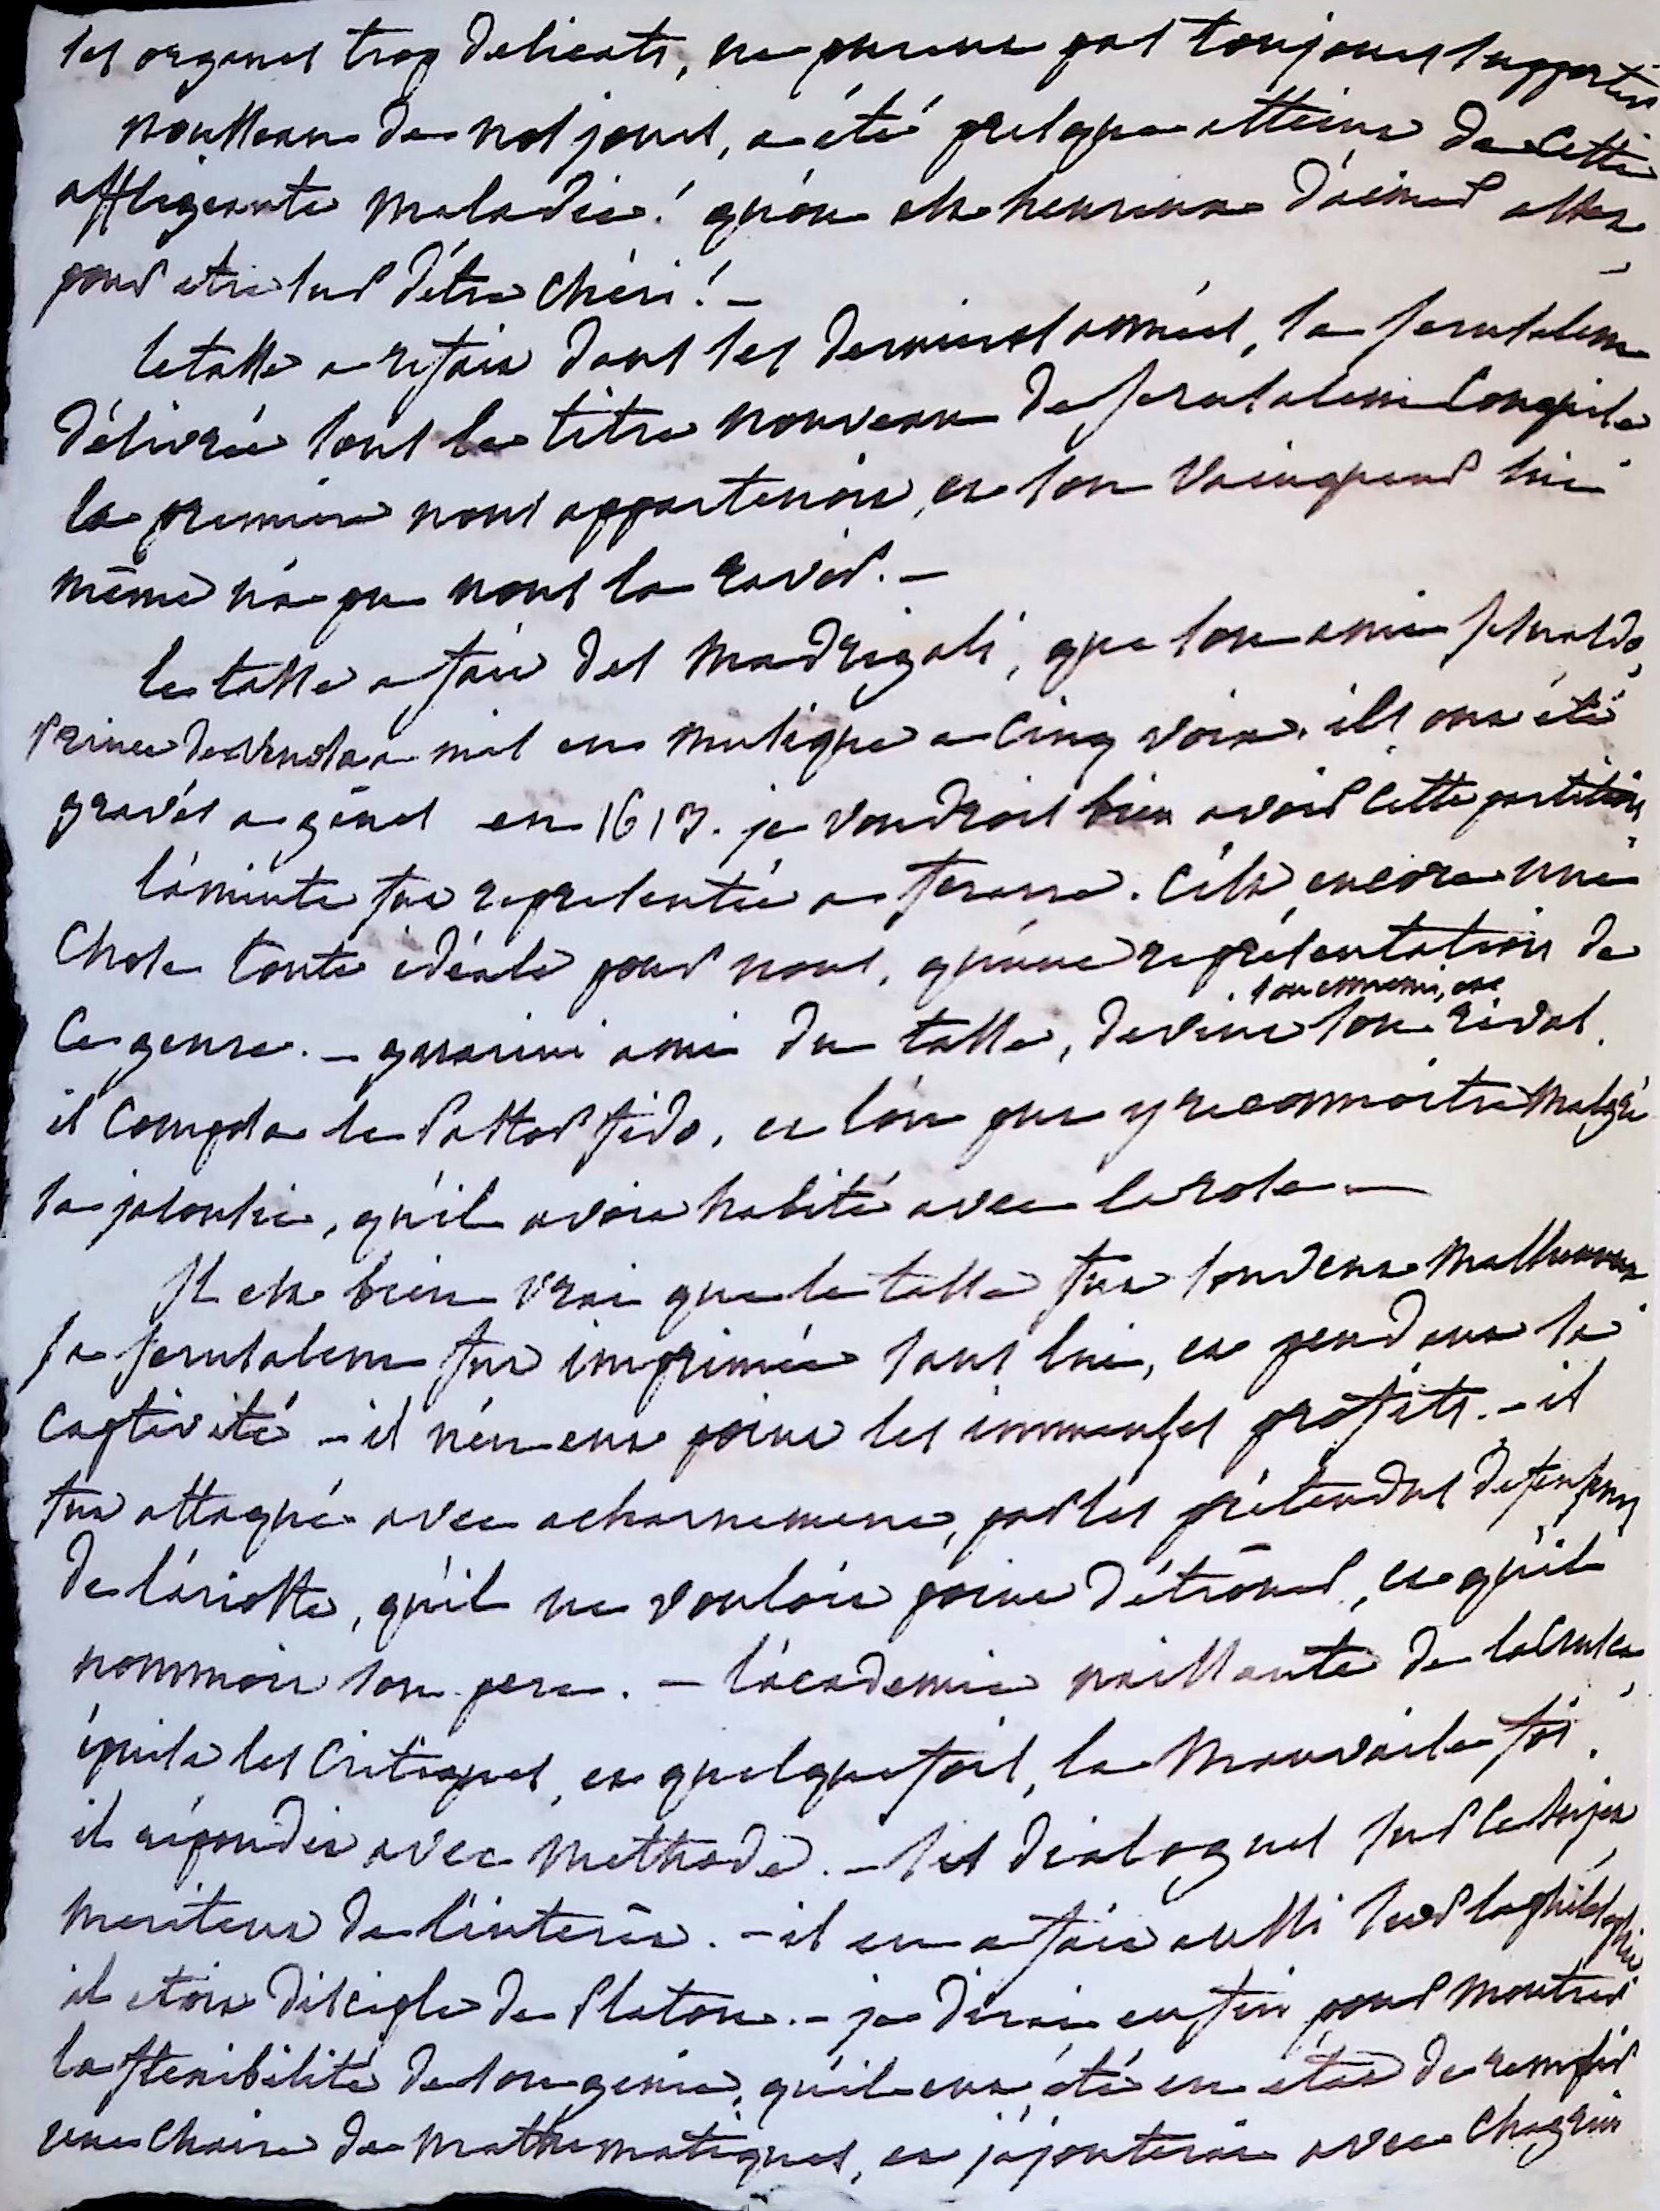 ses organes trop delicats, ne purent pas toujours supporter
rousseau de nos jours, a été presque atteint de cette
affligeante maladie! qu'on est heureux d'aimer assez
pour etre sur d'être chéri! -
le tasse a refait dans ses dernieres années, sa Jerusalem
délivrée sous le titre nouveau de Jerusalem Conquise
la premiere nous appartenoit, et son vainqueur lui
même n'a pu nous la ravir. -
le tasse a fait des Madrigali, que son ami Jesualdo,
Prince de Venosa a mis en musique a Cinq voix. ils ont été
gravés a gênes en 1613. je voudrois bien avoir cette partition,
l'aminte fut representée a ferrare. C'est encore une
Chose toute idéale pour nous, qu'une représentation de
Ce genre. - guarini ami du tasse, devint son ennemi, et son rival.
il Composa le Pastor fido, et l'on put y reconnoitre malgré
sa jalousie, qu'il avoit habité avec la rose -
Il est bien vrai que le tasse fut souvent malheureux
sa Jerusalem fut imprimée sans lui, et pendant sa
Captivité - il n'en eut point les immenses profits. - il
fut attaqué avec acharnement, par les prétendus defenseurs
de l'arioste, qu'il ne vouloit point détrôner, et qu'il
nommoit son pere. - l'academie naissante de la Crusca,
épuisa les Critiques, et quelquefois, la Mauvaise foi.
il répondit avec methode. - ses dialogues sur ce sujet
meritent de l'interêt. - il en a fait aussi sur la philosophie
il etoit disciple de Platon. - je dirai enfin pour montrer
la flexibilité de son genie, qu'il eut été en état de remplir
une Chaire de Mathematiques, et j'ajouterai avec Chagrin